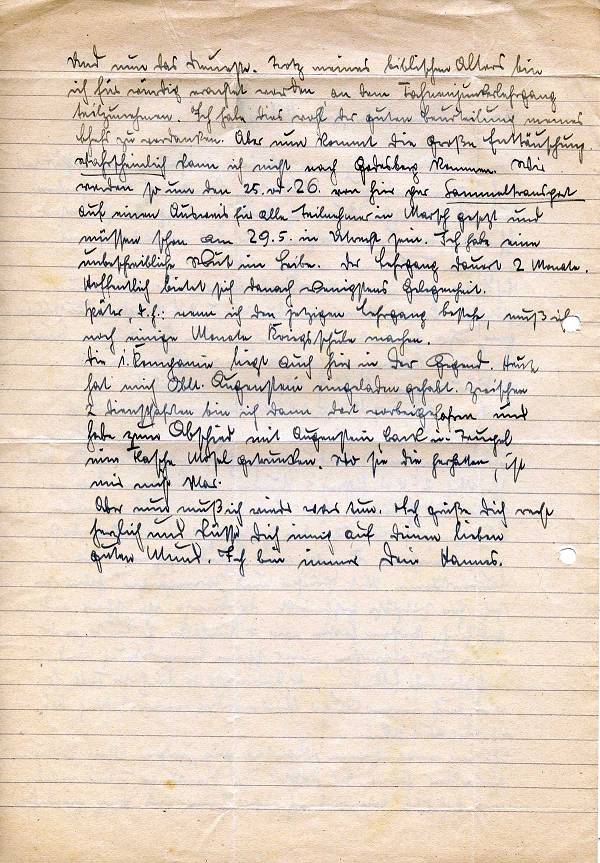 Und nun das Neueste. Trotz meines biblischen Alters bin
ich für würdig erachtet worden an dem Fahnenjunkerlehrgang
teilzunehmen. Ich habe dies wohl der guten Beurteilung meines
Chefs zu verdanken. Aber nun kommt die große Enttäuschung.
Wahrscheinlich kann ich nicht nach Godesberg kommen. Wir
werden so um den 25. od. 26. von hier per Sammeltransport
auf einen Ausweis für alle Teilnehmer in Marsch gesetzt und
müssen schon am 29.5. in Utrecht sein. Ich habe eine
unbeschreibliche Wut im Leibe. Der Lehrgang dauert 2 Monate.
Hoffentlich bietet sich danach wenigstens Gelegenheit.
Später, d.h.: wenn ich den jetzigen Lehrgang bestehe, muß ich
noch einige Monate Kriegsschule machen.
Die 1. Kompanie liegt auch hier in der Gegend. Heute
hat mich Oblt. Augenstein eingeladen gehabt. Zwischen
2 Dienstfahrten bin ich dann dort vorbeigefahren und
habe zum Abschied mit Augenstein, u.
eine Flasche Mosel getrunken. Wo sie die herhatten, ist
mir nicht klar.
Aber nun muß ich wieder was tun. Ich grüße Dich recht
herzlich und küsse Dich innig auf Deinen lieben
guten Mund. Ich bin immer Dein Hannes.